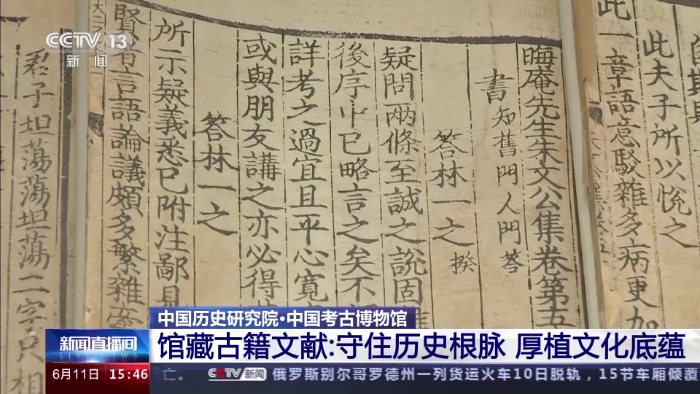 CCTV 13
新闻
此夫子所以悦之
此一章語意駁雜多病更
晦庵先生朱文公集卷第五
書 知舊門人問答
答林一之 揆
疑問兩條至誠之說固
後序中已略言之矣不
詳考之過宜且平心寬
或與朋友講之亦必得
答林一之
所示疑義悉已附注鄙見
賢者言語論議頗多繁雜
君子坦蕩蕩坦蕩二字只相
中国历史研究院·中国考古博物馆
新闻直播间
馆藏古籍文献:守住历史根脉 厚植文化底蕴
6月11日 15:46
亡。 CCTV新闻 俄罗斯别尔哥罗德州一列货运火车10日脱轨，15节车厢倾覆